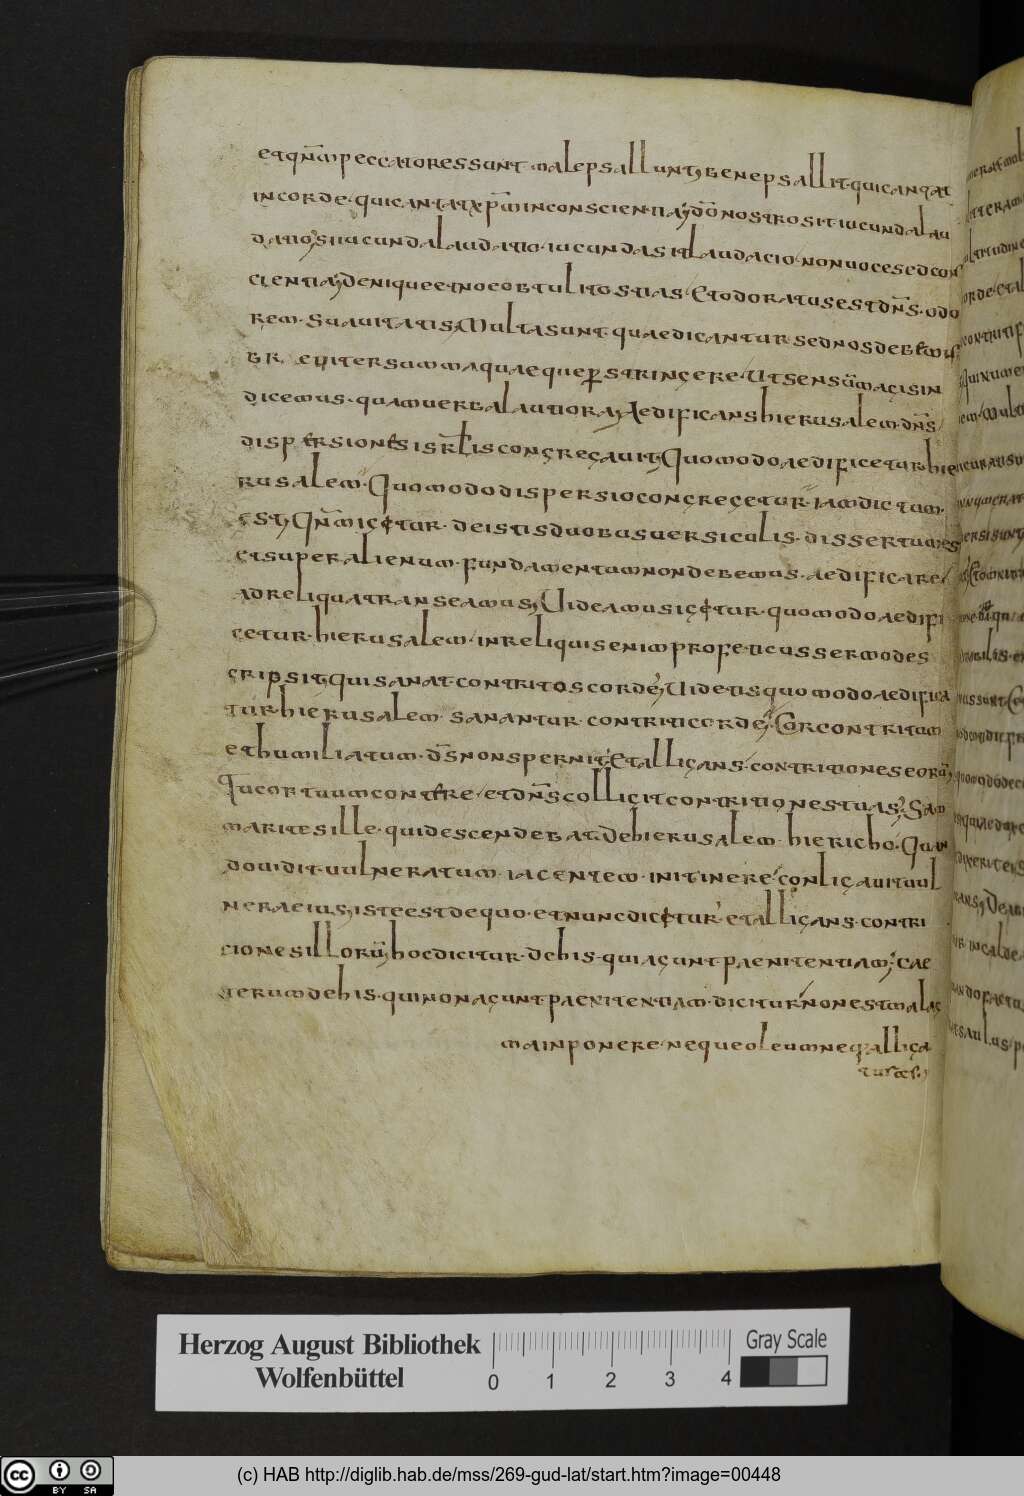 et qn̄m peccatores sunt male psallunt; bene psallit qui cantat
in corde· qui cantat xp̄m in conscientia; dō nostro sit iucunda lau
datio; si iucunda laudatio· iucunda sit laudacio· non uoce sed con
cientia; denique et noe obtulit ostias· et odoratus est dn̄s· odo
rem· suauitatis; Multa sunt· quae dicantur· sed nos debemus
breuiter summa quaeque perstringere· Ut sensum magis in
dicemus· quam uerba latiora; Aedificans hierusalem· dn̄s
dispersiones isrl̄is congregauit; Quomodo aedificetur hie
rusalem· Quomodo dispersio congregetur· iam dictum·
est; Qn̄m igetur· de istis duobus uersiculis· dissertum est
et super alienum· fundamentum non debemus· aedificare
ad reliqua transeamus; Uideamus igetur· quomodo aedifi
cetur· hierusalem· in reliquis enim profeticus sermo des
cripsit; Qui sanat contritos corde; Uidetis quomodo aedifica
tur· hierusalem· sanantur· contriti corde; Cor contritum
et humiliatum· ds̄ non spernit; Et alligans· contritiones eorum;
Tu cor tuum contere· et dn̄s colligit contritiones tuas; Sa
maritesille· qui descendebat· de hierusalem· hiericho· Quan
do uidit· uulneratum· iacentem· in itinere· conligauit uul
nera eius; iste est de quo· et nunc dicetur· et alligans· contri
ciones illorum; hoc dicitur· de his· qui agunt paenitentiam; Cae
terum de his· qui non agunt paenitentiam· dicitur· non est malag
ma inponere· neque oleum neq; alliga
turas;
Herzog August Bibliothek
Wolfenbüttel
0 1 2 3 4
Gray Scale
cc BY SA
(c) HAB http://diglib.hab.de/mss/269-gud-lat/start.htm?image=00448